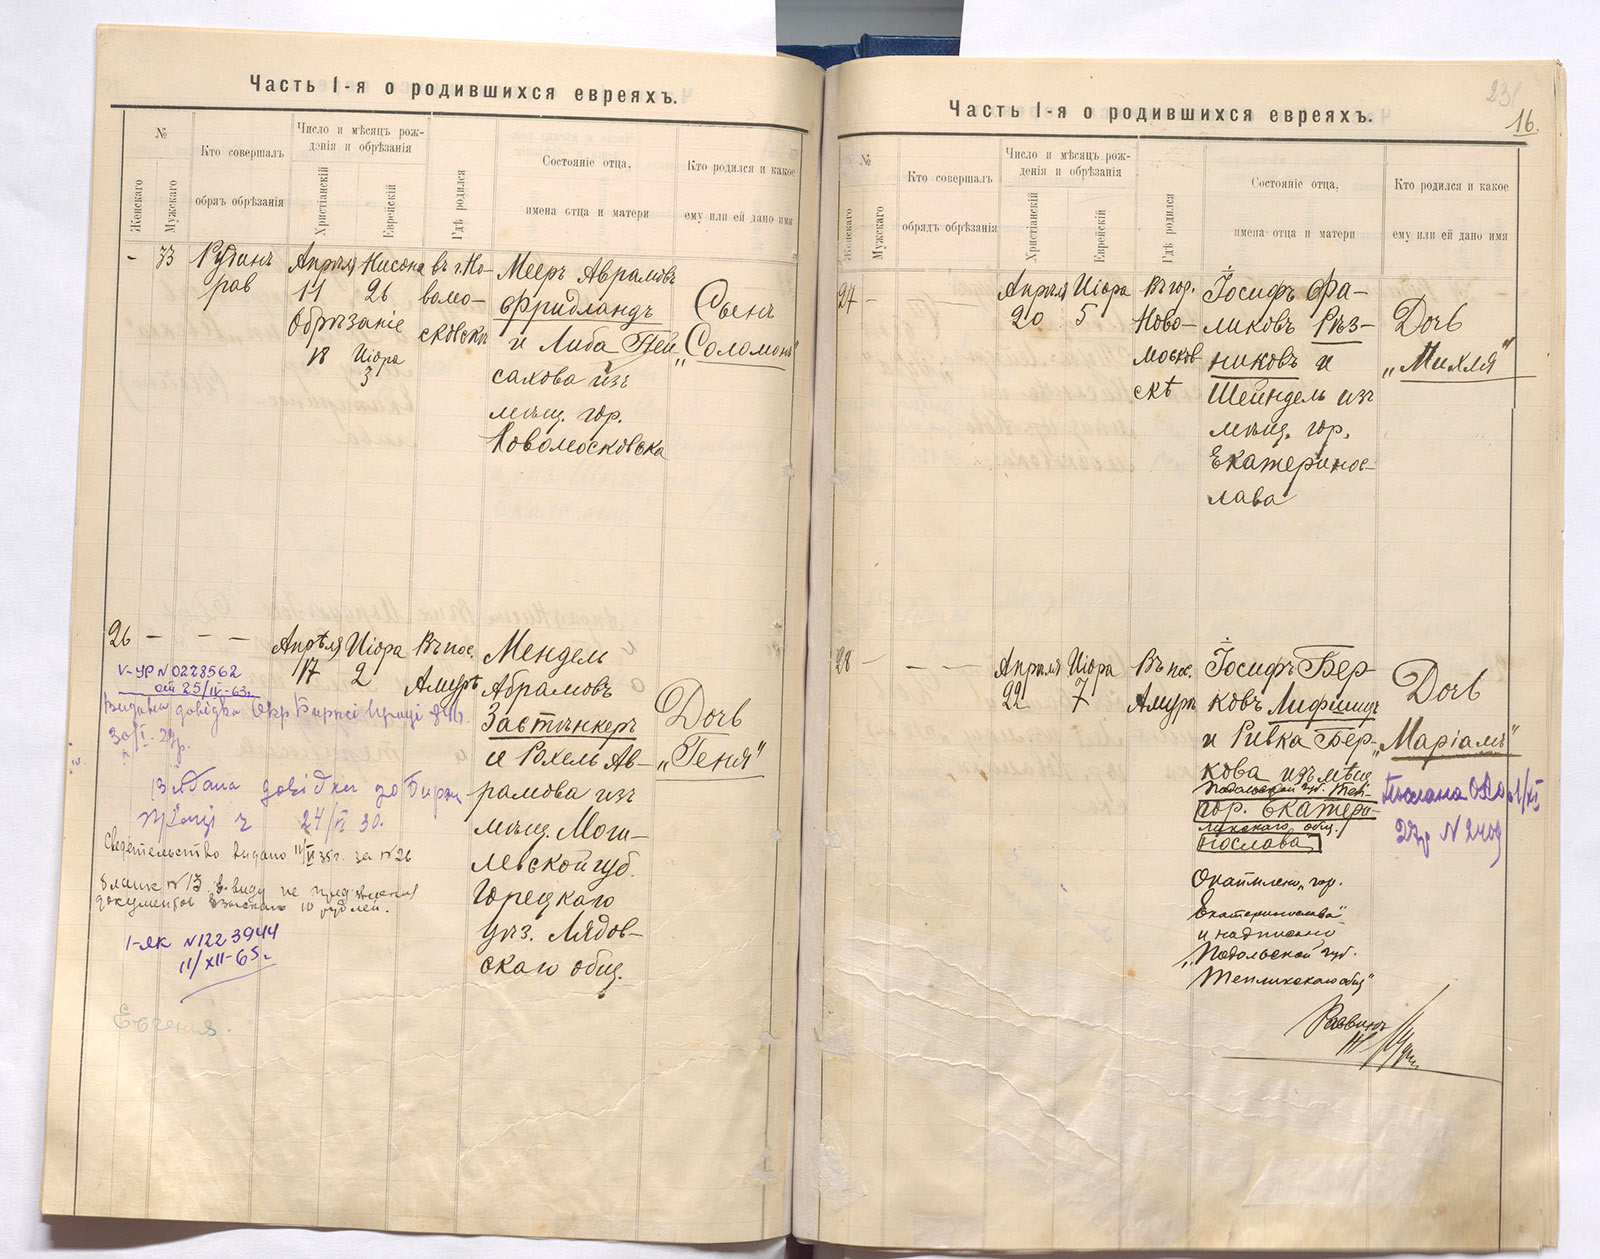 Часть I-я о родившихся евреяхъ.
№
Женскаго
Мужскаго
Кто совершалъ
обрядъ обрѣзанія
Число и мѣсяцъ рож-
денія и обрѣзанія
Христіанскій
Еврейскій
Гдѣ родился
Состояніе отца,
имена отца и матери
Кто родился и какое
ему или ей дано имя
- 33
Рудинъ
рав
Апрѣля
11
Обрѣзаніе
18
Нисона
26
Иіора
3
въ г. Но-
вомо-
сковскѣ
Мееръ Аврамовъ
Фридландъ
и Либа Пей
сахова изъ
мѣщ. гор.
Новомосковска
Сынъ
„Соломонъ“
26 - - -
Апрѣля
17
Иіора
2
Въ пос.
Амурѣ
Мендель
Абрамовъ
Застѣнкеръ
и Рохель Ав-
рамова изъ
мѣщ. Моги-
левской губ.
Горецкаго
уѣз. Лядов-
скаго общ.
Дочь
„Геня“
V-УР N 0228562
от 25/IV-63.
Видана довідка Окр Біржі праці
30/I-29р.
Видана довідка до Біржи
праці 24/VI 30.
Свидетельство выдано 11/VI 35г. за N 26
бланк N 13 в виду не предъявления
документов взыскано 10 рублей.
I-ЯК N 1223944
11/XII-65г.
Евгения.
Часть I-я о родившихся евреяхъ.
231
16.
№
Женскаго
Мужскаго
Кто совершалъ
обрядъ обрѣзанія
Число и мѣсяцъ рож-
денія и обрѣзанія
Христіанскій
Еврейскій
Гдѣ родился
Состояніе отца,
имена отца и матери
Кто родился и какое
ему или ей дано имя
27 -
Апрѣля
20
Иіора
5
Въ гор.
Ново-
москов
скѣ
Іосифъ Фа-
ликовъ Рѣз-
никовъ и
Шейндель изъ
мѣщ. гор.
Екатеринос-
лава
Дочь
„Михля“
28 - - -
Апрѣля
22
Иіора
7
Въ пос.
Амурѣ
Іосифъ Бер-
ковъ Лифшицъ
и Ривка Бер-
кова изъ мѣщ
Подольской губ. Теп-
гор. Екатери-
ликскаго общ.
нослава
Дочь
„Маріамъ“
N 2409
„гор.
Екатеринослава“
и надписано
„Подольской губ.
Тепликскаго общ“
Раввинъ